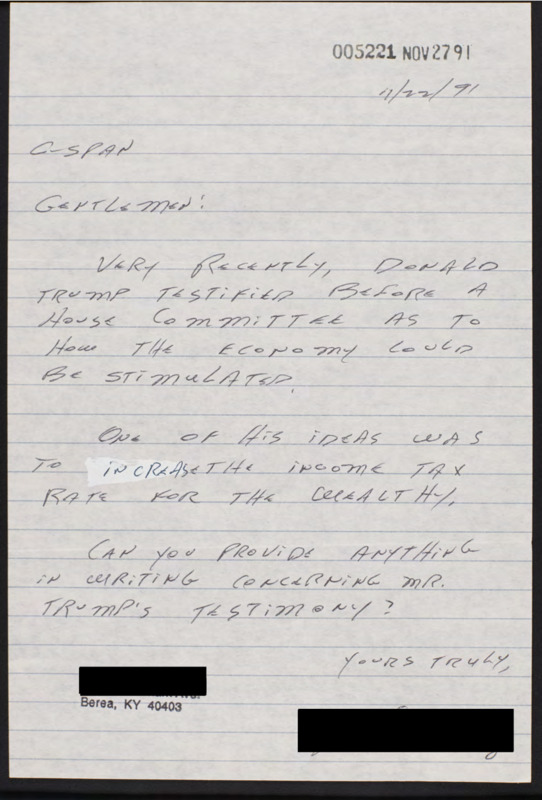 005221 NOV2791
11/22/91
C-SPAN
GENTLEMEN:
VERY RECENTLY, DONALD
TRUMP TESTIFIED BEFORE A
HOUSE COMMITTEE AS TO
HOW THE ECONOMY COULD
BE STIMULATED.
ONE OF HIS IDEAS WAS
TO INCREASE THE INCOME TAX
RATE FOR THE WEALTHY.
CAN YOU PROVIDE ANYTHING
IN WRITING CONCERNING MR.
TRUMP'S TESTIMONY?
YOURS TRULY,
Berea, KY 40403